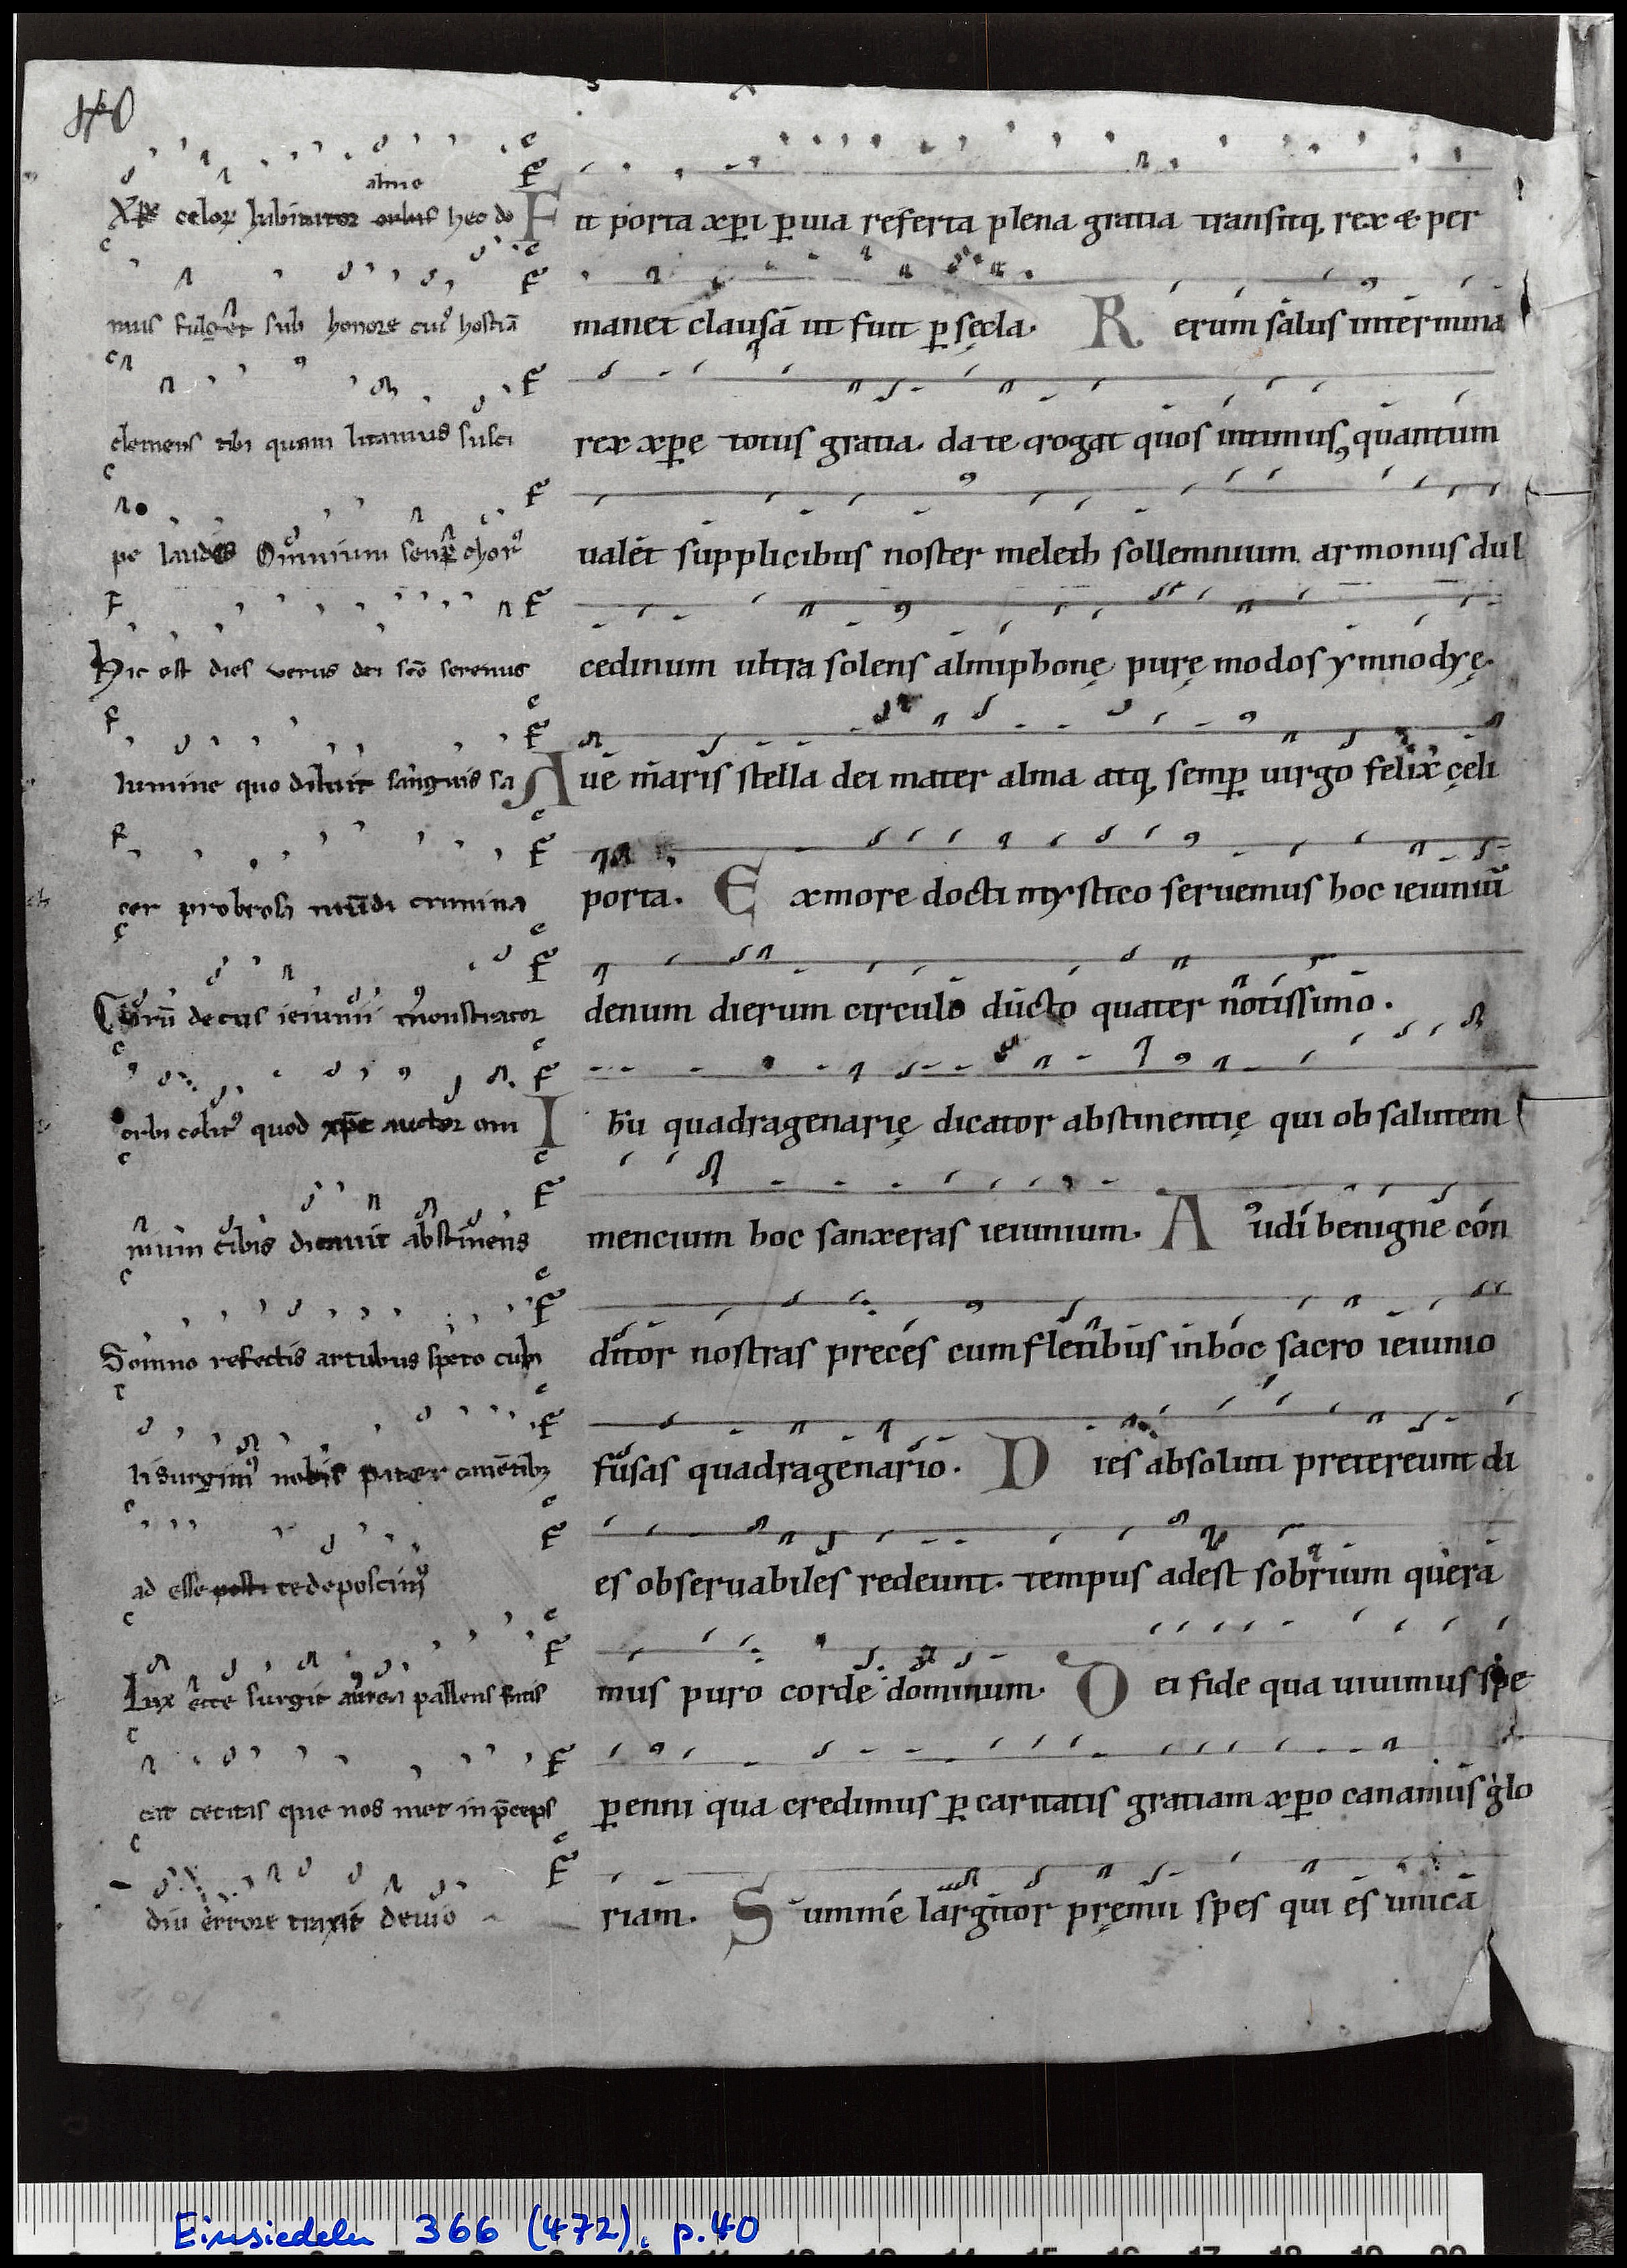 40
alme
Xpe celoꝝ habitator orbis hec do
mus fulget sub honore cuiꝰ hostiā
clemens tibi quam litamus susci
pe laudes Omnium semꝑ chorꝰ
Hic est dies verus dei scō serenus
lumine quo diluit sanguis sa
cer probrosa mundi crimina
Clarū decus ieiunii monstratur
orbi celitꝰ quod xpc auctor om
nium cibis dicavit abstinens
Somno refectis artubus spreto cubi
li surgimꝰ nobis pater canentibꝫ
ad esse te deposcimꝰ
Lux ecce surgit aurea pallens fatis
cat cecitas que nos met in p̄ceps
diu errore traxit devio
Fit porta xpi ꝑuia referta plena gratia transitq; rex & per
manet clausā ut fuit ꝑ sęcla. Rerum salus intermina
rex xpe totus gratia. da te rogat quos intimus, quantum
ualet supplicibus noster meleth sollemnium armoniis dul
cedinum ultra solens almiphonę purę modos ymnodyę.
Aue maris stella dei mater alma atq; semꝑ uirgo felix cęli
porta. Ex more docti mystico seruemus hoc ieiuniū
denum dierum circulo ducto quater notissimo.
Ihu quadragenarię dicator abstinentię qui ob salutem
mencium hoc sanxeras ieiunium. Audi benigne con
ditor nostras preces cum fletibus in hoc sacro ieiunio
fusas quadragenario. Dies absoluti pretereunt di
es obseruabiles redeunt. tempus adest sobrium quera
mus puro corde dominum. Dei fide qua uiuimus spe
ꝑenni qua credimus ꝑ caritatis gratiam xpo canamus glo
riam. Summe largitor pręmii spes qui es unica
Einsiedeln 366 (472), p. 40